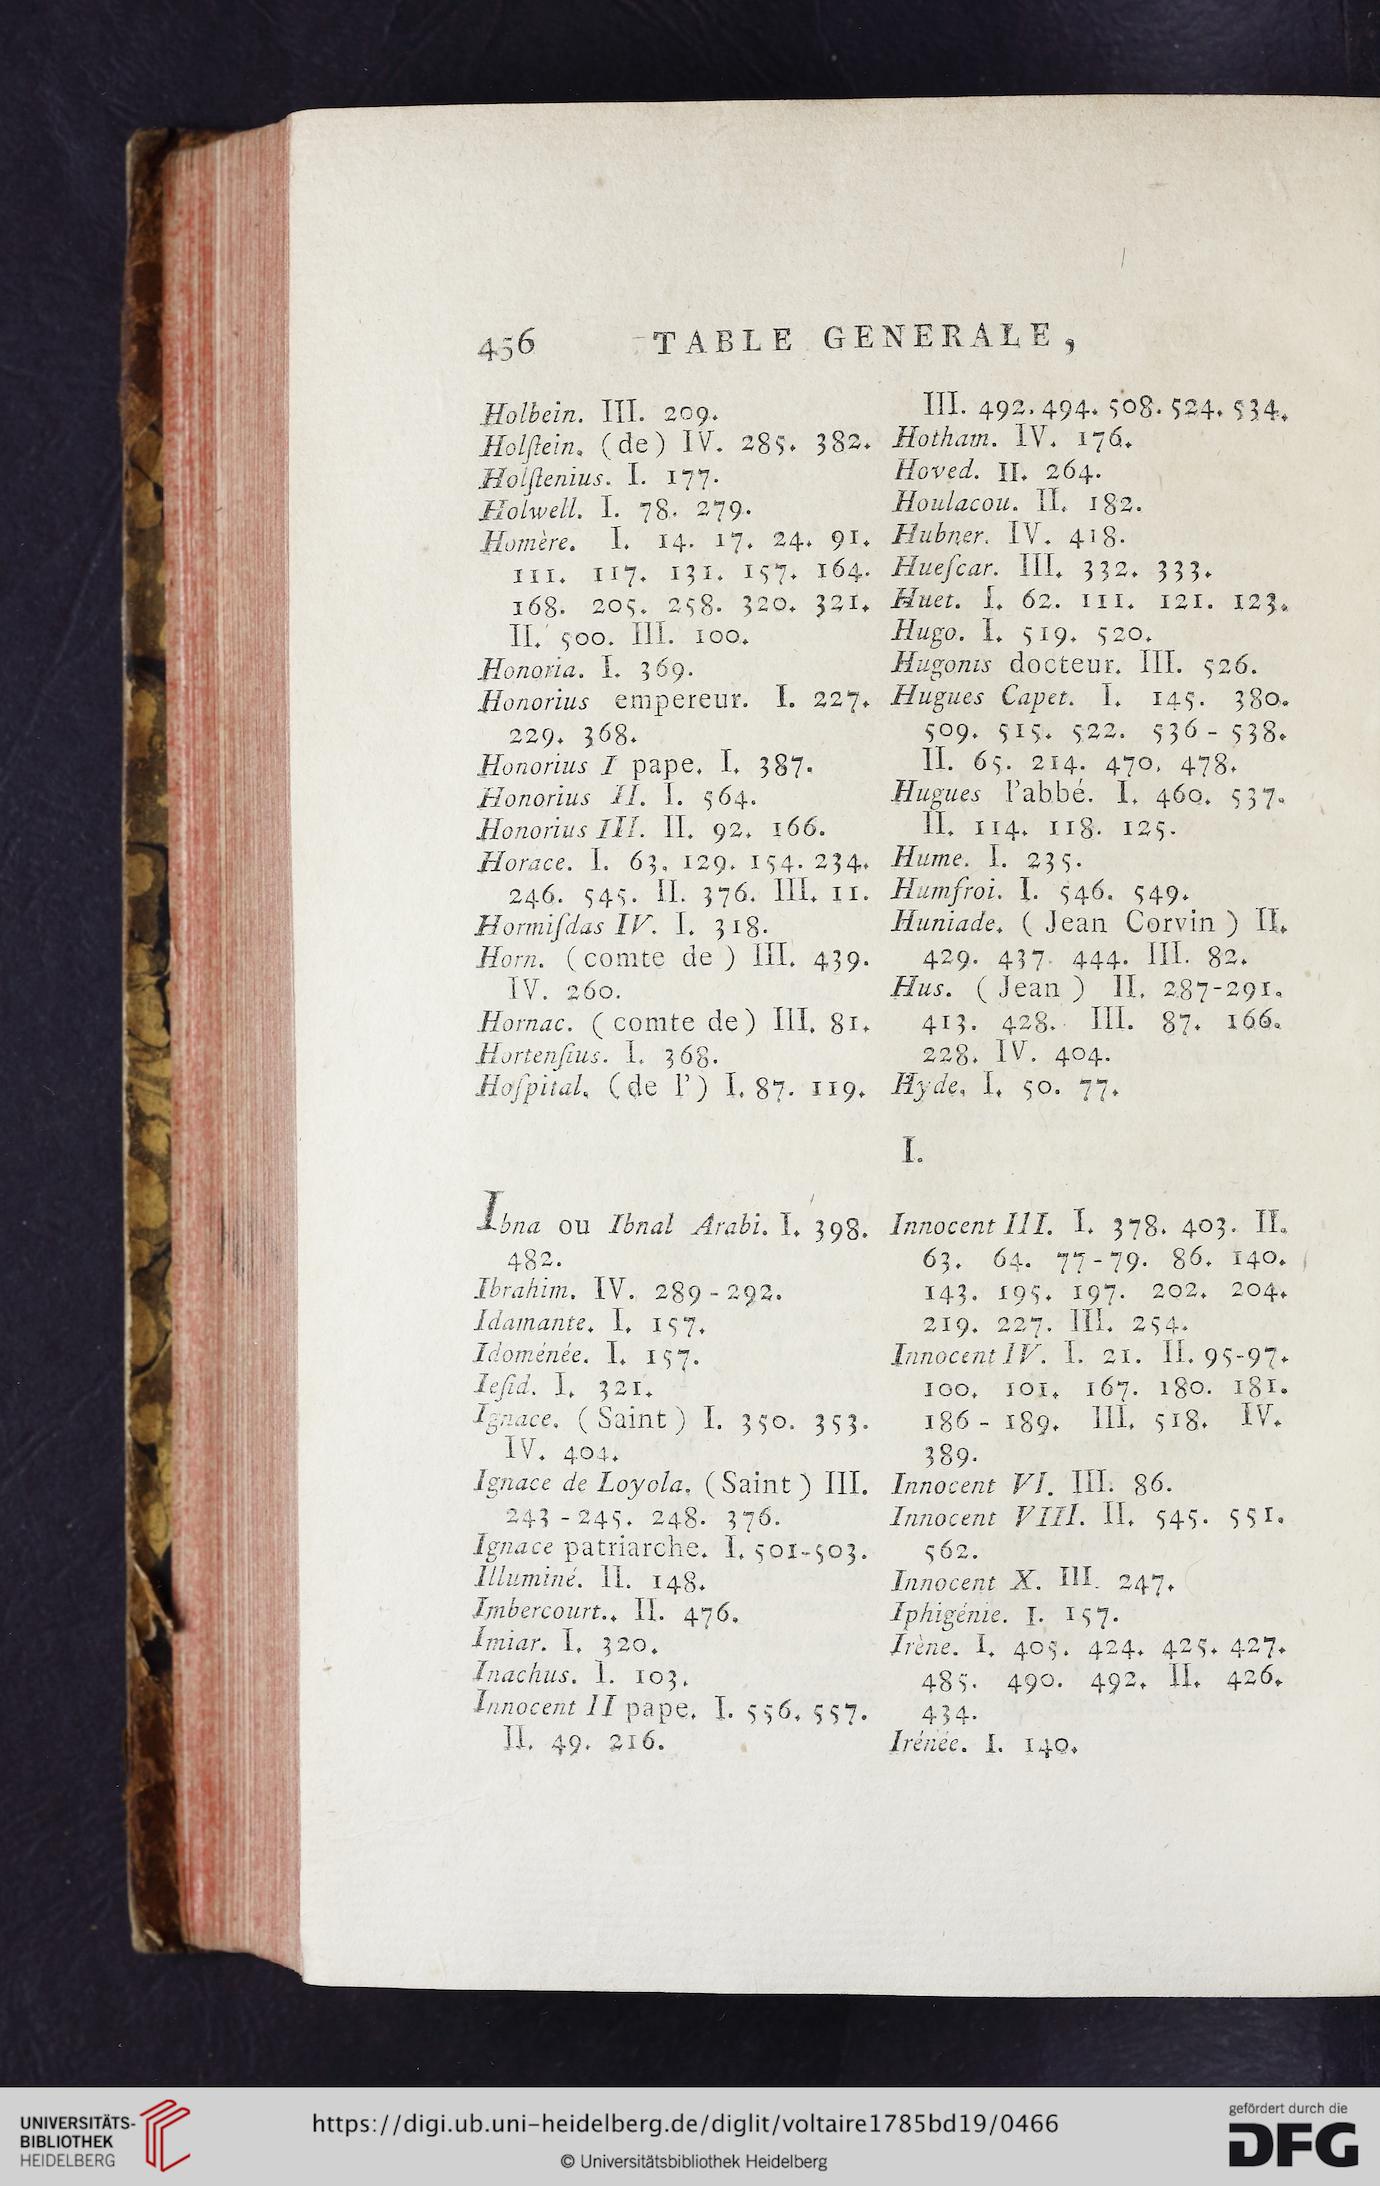 456 TABLE GENERALE,
Holbein. III. 209.
Holſtein. (de) IV. 285. 382.
Holſtenius. I. 177.
Holwell. I. 78. 279.
Homère. I. 14. 17. 24. 91.
111. 117. 131. 157. 164.
168. 205. 258. 320. 321.
II. 500. III. 100.
Honoria. I. 369.
Honorius empereur. I. 227.
229. 368.
Honorius I pape. I. 387.
Honorius II. I. 564.
Honorius III. II. 92. 166.
Horace. I. 63. 129. 154. 234.
246. 545. II. 376. III. 11.
Hormiſdas IV. I. 318.
Horn. (comte de) III. 439.
IV. 260.
Hornac. (comte de) III. 81.
Hortenſius. I. 368.
Hoſpital. (de l') I. 87. 119.
III. 492. 494. 508. 524. 534.
Hotham. IV. 176.
Hoved. II. 264.
Houlacou. II. 182.
Hubner. IV. 418.
Hueſcar. III. 332. 333.
Huet. I. 62. 111. 121. 123.
Hugo. I. 519. 520.
Hugonis docteur. III. 526.
Hugues Capet. I. 145. 380.
509. 515. 522. 536 - 538.
II. 65. 214. 470. 478.
Hugues l'abbé. I. 460. 537.
II. 114. 118. 125.
Hume. I. 235.
Humfroi. I. 546. 549.
Huniade. (Jean Corvin) II.
429. 437. 444. III. 82.
Hus. (Jean) II. 287-291.
413. 428. III. 87. 166.
228. IV. 404.
Hyde. I. 50. 77.
I.
Ibna ou Ibnal Arabi. I. 398.
482.
Ibrahim. IV. 289 - 292.
Idamante. I. 157.
Idoménée. I. 157.
Ieſid. I. 321.
Ignace. (Saint) I. 350. 353.
IV. 404.
Ignace de Loyola. (Saint) III.
243 - 245. 248. 376.
Ignace patriarche. I. 501-503.
Illuminé. II. 148.
Imbercourt.. II. 476.
Imiar. I. 320.
Inachus. I. 103.
Innocent II pape. I. 556. 557.
II. 49. 216.
Innocent III. I. 378. 403. II.
63. 64. 77-79. 86. 140.
143. 195. 197. 202. 204.
219. 227. III. 254.
Innocent IV. I. 21. II. 95-97.
100. 101. 167. 180. 181.
186 - 189. III. 518. IV.
389.
Innocent VI. III. 86.
Innocent VIII. II. 545. 551.
562.
Innocent X. III. 247.
Iphigénie. I. 157.
Irène. I. 405. 424. 425. 427.
485. 490. 492. II. 426.
434.
Irénée. I. 140.
UNIVERSITÄTS-
BIBLIOTHEK
HEIDELBERG
https://digi.ub.uni-heidelberg.de/diglit/voltaire1785bd19/0466
© Universitätsbibliothek Heidelberg
gefördert durch die
DFG